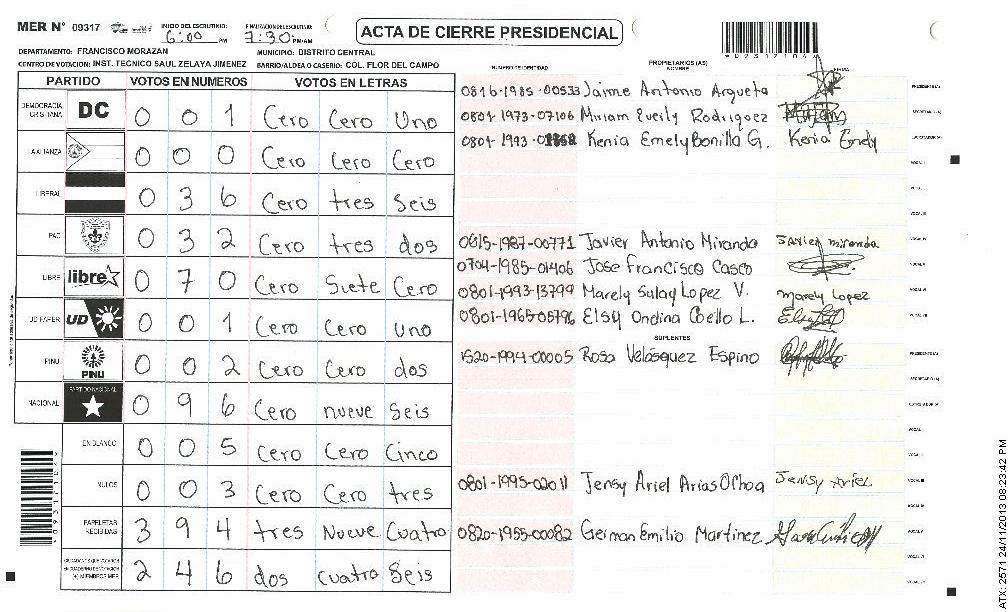 MER N° 09317
INICIO DEL ESCRUTINIO:
6:00 PM
FINALIZACION DEL ESCRUTINIO:
7:30 PM/AM
ACTA DE CIERRE PRESIDENCIAL
DEPARTAMENTO: FRANCISCO MORAZAN
MUNICIPIO: DISTRITO CENTRAL
CENTRO DE VOTACION: INST. TECNICO SAUL ZELAYA JIMENEZ
BARRIO/ALDEA O CASERIO: COL. FLOR DEL CAMPO
PARTIDO VOTOS EN NUMEROS VOTOS EN LETRAS
DEMOCRACIA CRISTIANA DC 0 0 1 Cero Cero Uno
LA ALIANZA 0 0 0 Cero Cero Cero
LIBERAL 0 3 6 Cero tres Seis
PAC 0 3 2 Cero tres dos
LIBRE libre 0 7 0 Cero Siete Cero
UD FAPER UD 0 0 1 Cero Cero uno
PINU PINU 0 0 2 Cero Cero dos
NACIONAL PARTIDO NACIONAL 0 9 6 Cero nueve Seis
EN BLANCO 0 0 5 Cero Cero Cinco
NULOS 0 0 3 Cero Cero tres
PAPELETAS RECIBIDAS 3 9 4 tres Nueve Cuatro
CIUDADANOS QUE VOTARON EN CUADERNO DE VOTACION (+) MIEMBROS MER 2 4 6 dos cuatro Seis
NUMERO DE IDENTIDAD
PROPIETARIOS (AS)
NOMBRE
FIRMA
0816-1985-00533 Jaime Antonio Argueta PRESIDENTE (A)
0801-1973-07106 Miriam Evelly Rodriguez SECRETARIO (A)
0801-1993-01868 Kenia Emely Bonilla G. Kenia Emely ESCRUTADOR (A)
VOCAL I
VOCAL II
VOCAL III
0615-1987-00771 Javier Antonio Miranda Javier miranda VOCAL IV
0704-1985-01406 Jose Francisco Casco VOCAL V
0801-1993-13799 Marely Sulay Lopez V. Marely Lopez VOCAL VI
0801-1965-05796 Elsy Ondina Coello L. VOCAL VII
SUPLENTES
1520-1994-00005 Rosa Velásquez Espino PRESIDENTE (A)
SECRETARIO (A)
ESCRUTADOR (A)
VOCAL I
VOCAL II
0801-1995-02011 Jensy Ariel Arias Ochoa Jensy Ariel VOCAL III
VOCAL IV
0820-1955-00082 German Emilio Martinez VOCAL V
VOCAL VI
VOCAL VII
ATX: 2571 24/11/2013 08:23:42 PM